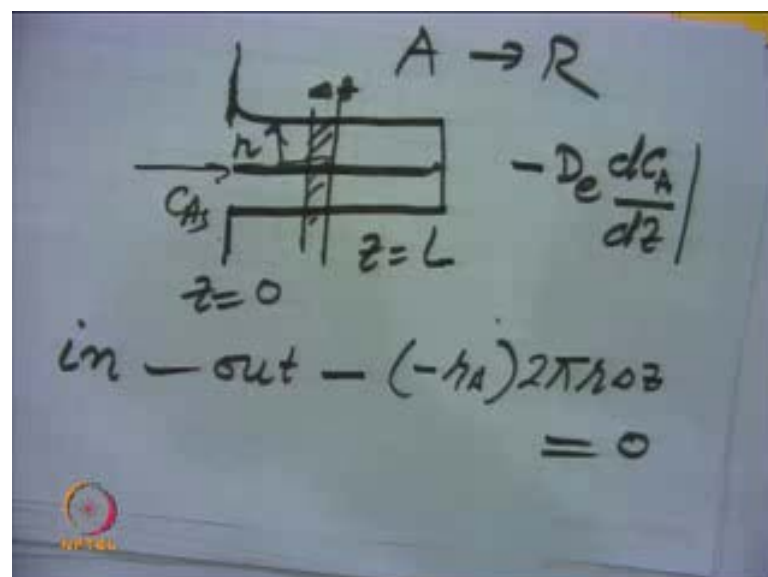 A → R
Δz
r
- De dCA/dz |
CAs
z = L
z = 0
in - out - (-rA) 2πrΔz
= 0
NPTEL